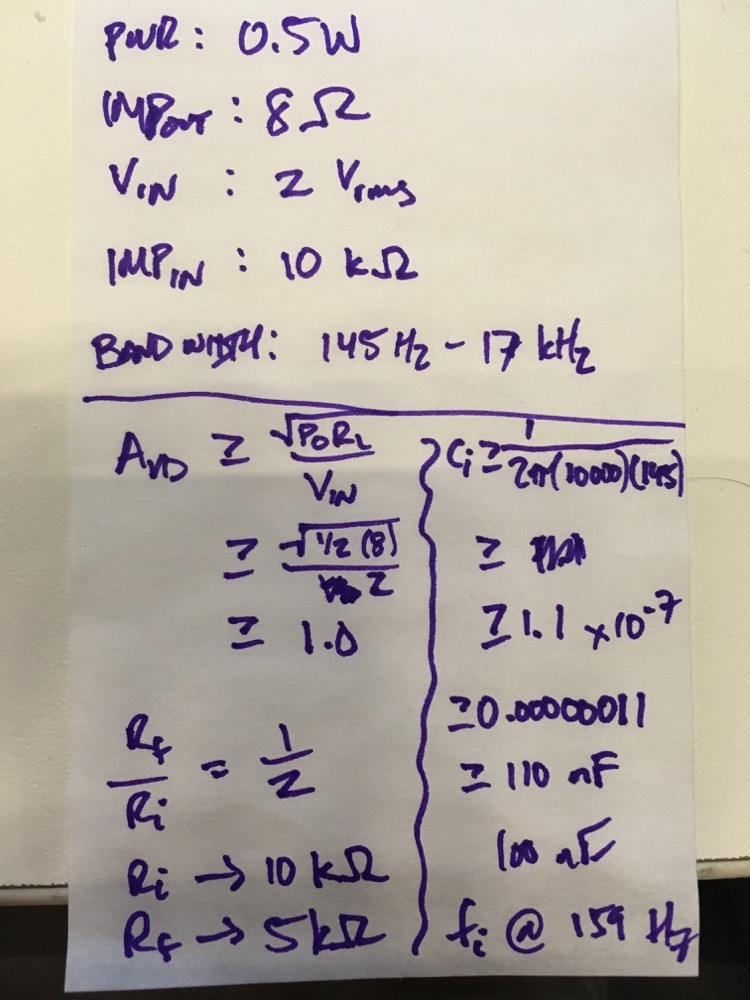 PWR: 0.5W
IMPOUT : 8 Ω
VIN : 2 Vrms
IMPIN : 10 kΩ
BANDWIDTH: 145 Hz - 17 kHz
AVD ≥ √PORL / VIN
≥ √1/2 (8) / 2
≥ 1.0
Rf / Ri = 1/2
Ri → 10 kΩ
Rf → 5 kΩ
Ci ≥ 1 / 2π(10000)(145)
≥
≥ 1.1 x10-7
≥ 0.00000011
≥ 110 nF
100 nF
fi @ 159 Hz